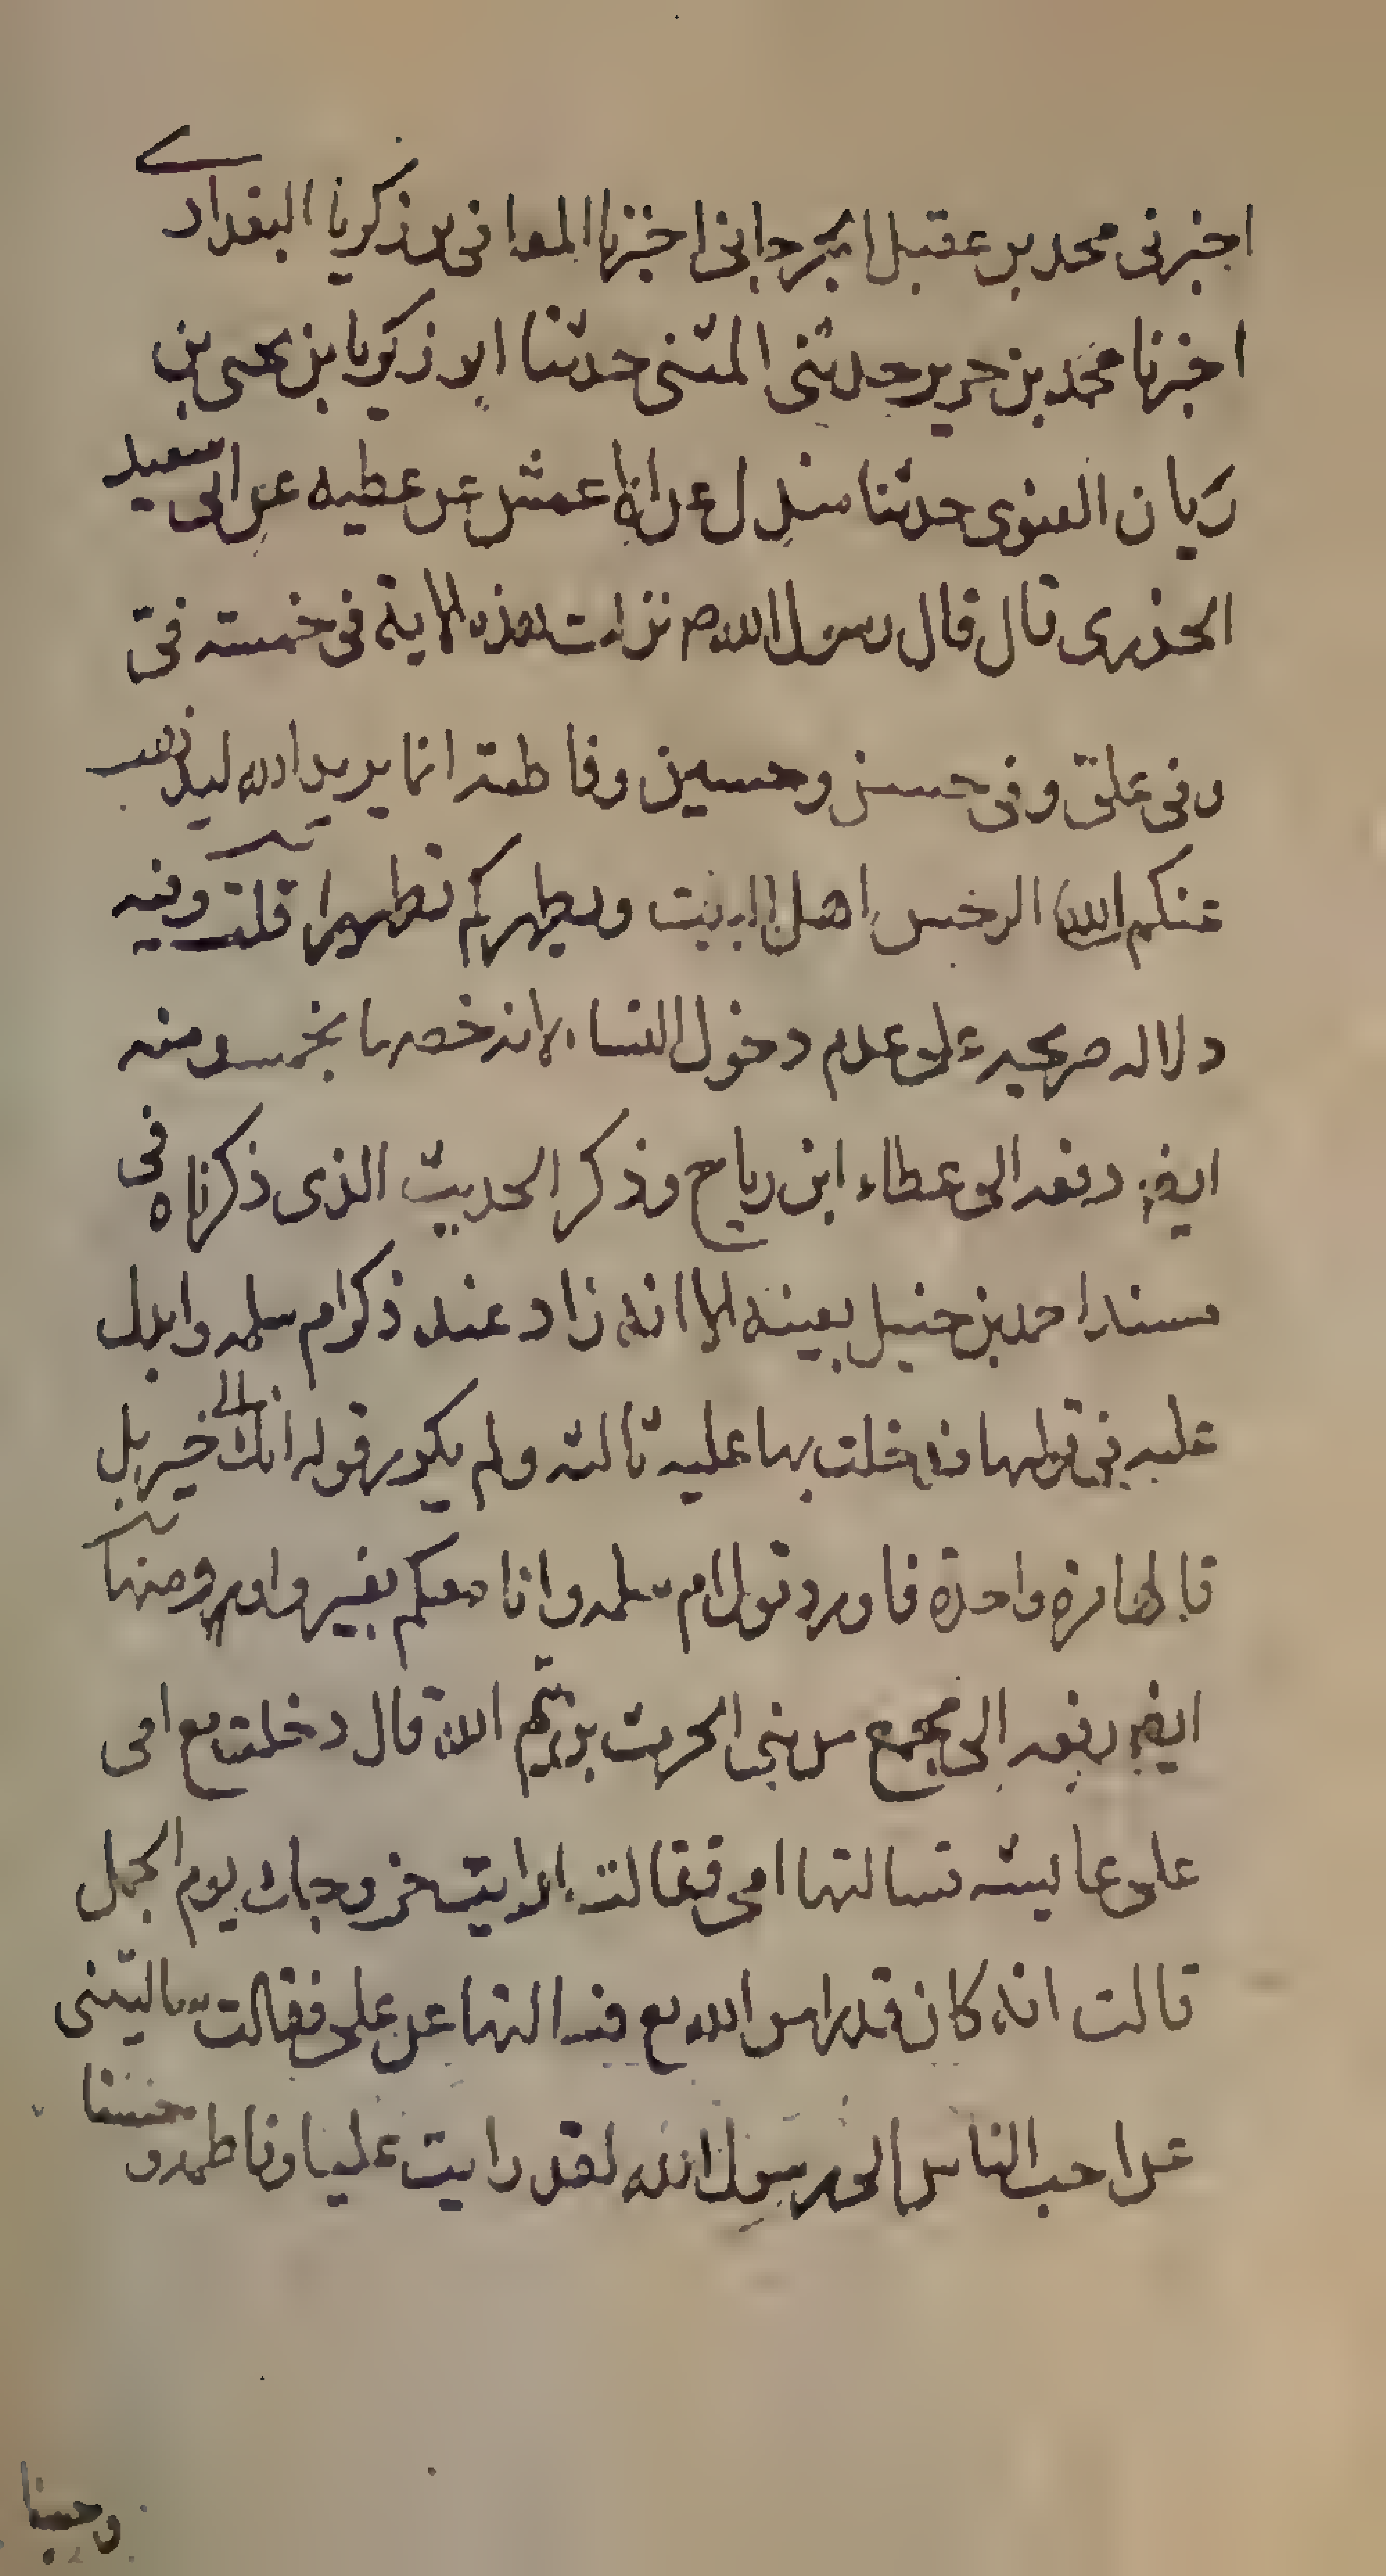 اخبرنى محمد بن عقيل الجرجانى اخبرنا المعافى بن زكريا البغدادى
اخبرنا محمد بن جرير حدثنى المثنى حدثنا ابو زكريا بن يحيى بن
ريان العنوى حدثنا مندل عن الاعمش عن عطيه عن ابى سعيد
الخذرى قال قال رسول الله ص نزلت هذه الاية فى خمسته فىّ
وفى علىّ وفى حسن وحسين وفاطمة انما يريد الله ليذهب
عنكم الله الرجس اهل البيت ويطهركم تطهيرا قلت وفيه
دلاله صريحه على عدم دخول النساء لانه خصها بخمسه ومنه
ايضا رفعه الى عطاء ابن رياح وذكر الحديث الذى ذكرناه فى
مسند احمد بن حنبل بعينه الا انه زاد عند ذكر ام سلمه وابدل
عليه فى قولها فدخلت بها عليه ثالثه ولم يكرر قوله انك الى خير بل
قالها مرة واحدة فاورد قول ام سلمه وانا معكم بغير واو ومنها
ايضا رفعه الى مجمع من بنى الحرث بن تيم الله قال دخلت مع امى
على عايشه فسالتها امى فقالت ارايت خروجك يوم الجمل
قالت انه كان قدرا من الله مع فسالتها عن على فقالت سالتنى
عن احب الناس الى رسول الله لقد رايت عليا وفاطمه وحسنا
وحسينا